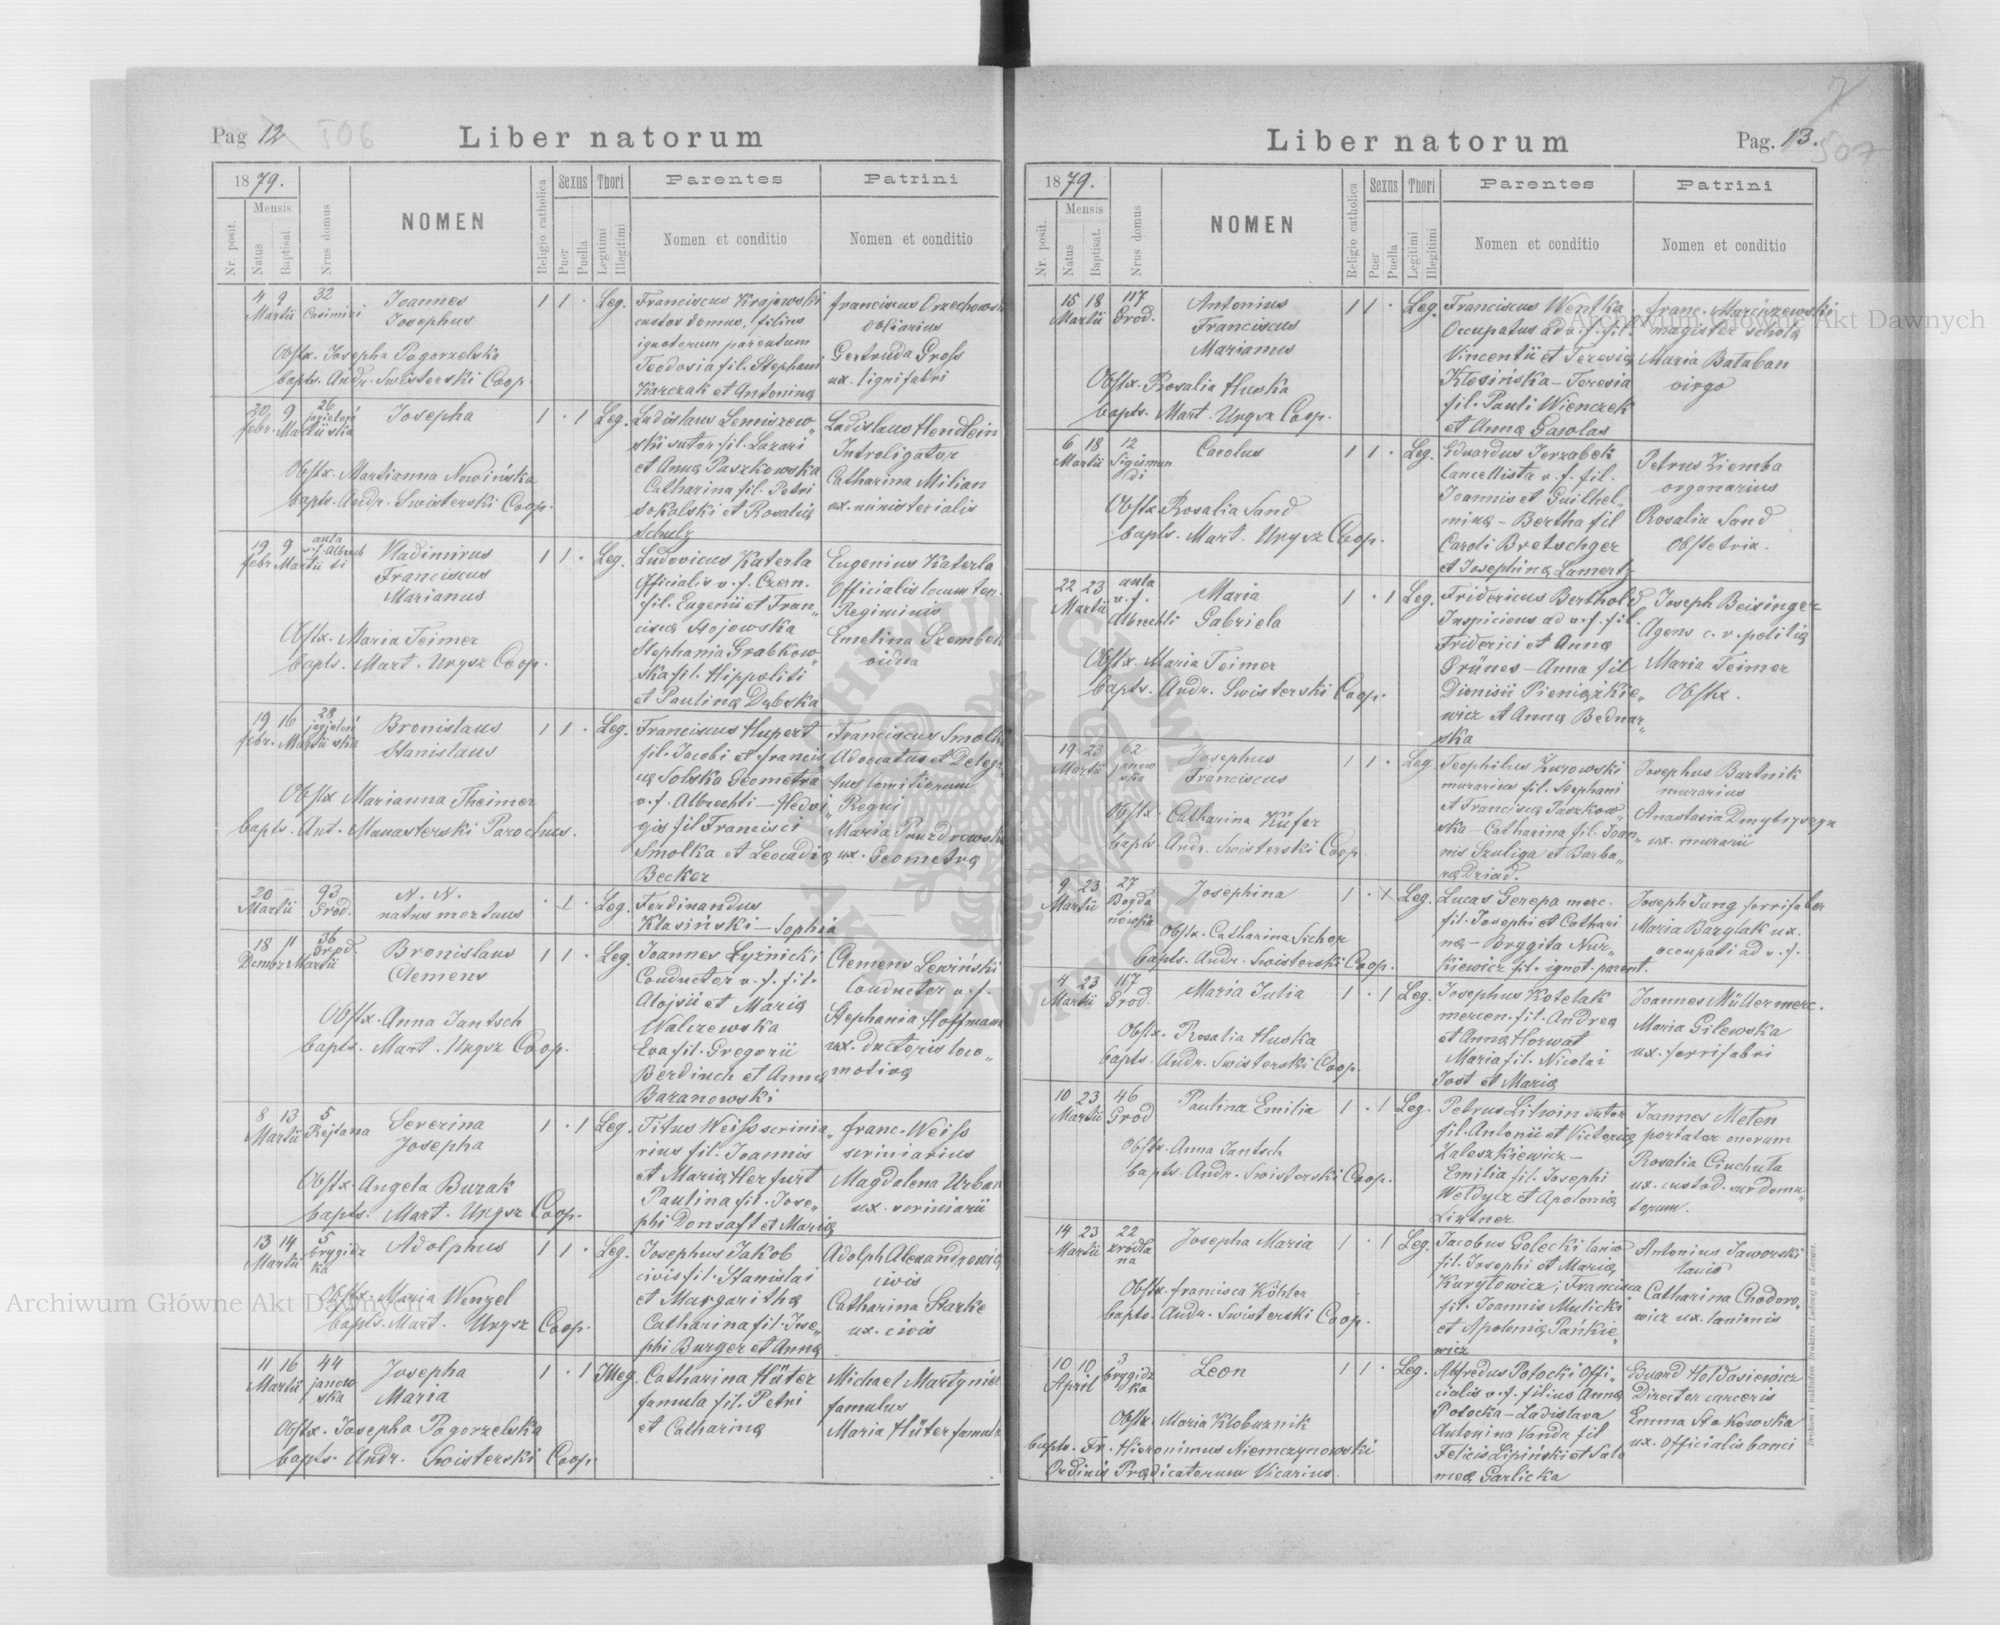 Pag 12
506
Liber natorum
1879.
Mensis
Nr. posit.
Natus
Baptisat.
Nrus domus
NOMEN
Religio catholica
Sexus
Puer
Puella
Thori
Legitimi
Illegitimi
Parentes
Nomen et conditio
Patrini
Nomen et conditio
4 9 32 Joannes 1 1 · Leg. Franciscus Krajewski Franciscus Orzechowski
Martii Casimiri Josephus custos domus, filius obliarius
ignotorum parentum
Obstx. Josepha Pogorzelska Teodosia fil. Stephani Gertruda Gross
bapts. Andr. Swisterski Coop. Karczak et Antonina ux. lignifabri
20 9 26 Josepha 1 · 1 Leg. Ladislaus Lemiszew„ Ladislaus Hendlein
febr. Martii ski sutor fil. Lazari Introligator
Obstx. Martianna Nowińska et Anna Paszkowska Catharina Milian
bapts. Andr. Swisterski Coop. Catharina fil. Petri ux. ministerialis
Sokalski et Rosalia
Schulz
19 9 aula Vladimirus 1 1 · Leg. Ludovicus Katerla Eugenius Katerla
febr. Martii v. f. Albrech ti Franciscus Officialis v. f. Czern. Officialis locum ten.
Marianus fil. Eugenii et Fran„ Regiminis
Obstx. Maria Teimer cisca Stojowska Emelina Szembek
bapts. Mart. Urysz Coop. Stephania Grabkow„ vidua
ska fil. Hippoliti
et Paulina Dąbska
19 16 29 Bronislaus 1 1 · Leg. Franciscus Hupert Franciscus Smolka
febr. Martii Stanislaus fil. Jacobi et Francis„ Advocatus et Delega
ca Solska Geometra tus Comitiorum
Obstx Marianna Theimer v. f. Albrechti – Hedvi„ Regni
bapts. Ant. Manasterski Parochus. gis fil Francisci Maria
Smolka et Leocadia ux. Geometra
Becker
20 — 93 N. N. · 1 · Leg. Ferdinandus —
Martii Grod. natus mortuus Klasiński – Sophia
18 11 36 Bronislaus 1 1 · Leg. Joannes Łyżnicki Clemens Lewiński
Decembr Martii Grod. Clemens Conductor v. f. fil. Conductor v. f.
Alojsii et Maria Stephania Hoffmann
Obstx. Anna Jantsch Walczewska ux. ductoris loco„
bapts. Mart. Urysz Coop. Eva fil. Gregorii motiva
Berdinch et Anna
Baranowski
8 13 5 Severina 1 · 1 Leg. Titus Weiss scrinia„ Franc. Weiss
Martii Rejtana Josepha rius fil. Joannis scriniarius
Obstx. Angela Burak et Maria Herfurt Magdalena Urban
bapts. Mart. Urysz Coop. Paulina fil. Jose„ ux. scriniarii
phi Donsaft et Maria
13 14 5 Adolphus 1 1 · Leg. Josephus Jakob Adolph Alexandrowicz
Martii brygidz ka civis fil. Stanislai civis
Obstx. Maria Wenzel et Margaritha Catharina Starke
bapts. Mart. Urysz Coop. Catharina fil. Jose„ ux. civis
phi Burger et Anna
11 16 44 Josepha 1 · 1 Illeg. Catharina Hüter Michael Martyniec
Martii janow ska Maria famula fil. Petri famulus
Obstx. Josepha Pogorzelska et Catharina Maria Hüter famula
bapts. Andr. Swisterski Coop.
Liber natorum
Pag. 13.
507
7
1879.
Mensis
Nr. posit.
Natus
Baptisat.
Nrus domus
NOMEN
Religio catholica
Sexus
Puer
Puella
Thori
Legitimi
Illegitimi
Parentes
Nomen et conditio
Patrini
Nomen et conditio
15 18 117 Antonius 1 1 · Leg. Franciscus Wentka Franc. Marciszewski
Martii Grod. Franciscus Occupatus ad v. f. fil. magister schola
Marianus Vincentii et Teresia Maria Bataban
Obstx. Rosalia Huska Kłosińska – Teresia virgo
bapts. Mart. Urysz Coop. fil. Pauli Wienczek
et Anna Gasolas
6 18 12 Carolus 1 1 · Leg. Eduardus Jerzabek Petrus Ziemba
Martii Sigismun di Cancellista v. f. fil. orgonarius
Joannis et Guilhel„
Obstx Rosalia Sand mina – Bertha fil Rosalia Sand
bapts. Mart. Urysz Coop. Caroli Bretschger Obstetrix.
et Josephina Lamertz
22 23 aula Maria 1 · 1 Leg. Fridericus Berthold Joseph Beisinger
Martii v. f. Albrechti Gabriela Inspiciens ad v. f. fil. Agens c. r. politia
Friderici et Anna Maria Teimer
Obstx. Maria Teimer Grünes – Anna fil Obstx.
bapts. Andr. Swisterski Coop. Dionisii Pieniążkie„
wicz et Anna Bednar„
ska
19 23 62 Josephus 1 1 · Leg. Teophilus Żurowski Josephus Bartnik
Martii janow ska Franciscus murarius fil. Stephani murarius
Obstx. Catharina Küfer et Francisca Paszkow„ Anastasia Dmytryszyn
bapts. Andr. Swisterski Coop. ska – Catharina fil. Joan„ ux. murarii
nis Szuliga et Barba„
ra Dziad.
9 23 27 Josephina 1 · 1 Leg. Lucas Gerepa merc. Joseph Jung ferrifaber
Martii Bogda nówka fil. Josephi et Cathari Maria Barglak ux.
Obstx. Catharina Sichor na – Brygita Nur„ occupati ad v. f.
bapts. Andr. Swisterski Coop. kiewicz fil. ignot. parent.
4 23 117 Maria Julia 1 · 1 Leg. Josephus Kotelak Joannes Müller merc.
Martii Grod. mercen. fil. Andrea Maria Gilewska
Obstx. Rosalia Huska et Anna Horwat ux. ferrifabri
bapts. Andr. Swisterski Coop. Maria fil. Nicolai
Jost et Maria
10 23 46 Paulina Emilia 1 · 1 Leg. Petrus Litwin sutor Joannes Meten
Martii Grod fil. Antonii et Victoria portator onerum
Obstx. Anna Jantsch Zaleszkiewicz – Rosalia Ciuchuta
bapts. Andr. Swisterski Coop. Emilia fil. Josephi ux. custod.
Weldycz et Apolonia
Lintner
14 23 22 Josepha Maria 1 · 1 Leg. Jacobus Golecki lanio Antonius Jaworski
Martii zrodla na fil. Josephi et Maria lanio
Obstx. Francisca Köhler Kurylowicz; Francisca Catharina Chodoro„
bapts. Andr. Swisterski Coop. fil. Joannis Mulicki wicz ux. lanionis
et Apolonia Pańkie„
wicz
10 10 3 Leon 1 1 · Leg. Alfredus Potocki Offi„ Eduard Hołdasiewicz
April brygidz ka cialis v. f. filius Anna Director carceris
Obstx. Maria Klobuznik Potocka – Ladislava Emma Stokowska
bapts. Fr. Hieronimus Niemczynowski Antonina Vanda fil ux. Officialis banci
Ordinis Prædicatorum Vicarius. Felicis Lipiński et Salo
mea Garlicka
Archiwum Główne Akt Dawnych
Archiwum Główne Akt Dawnych
ARCHIWUM GŁÓWNE AKT DAWNYCH